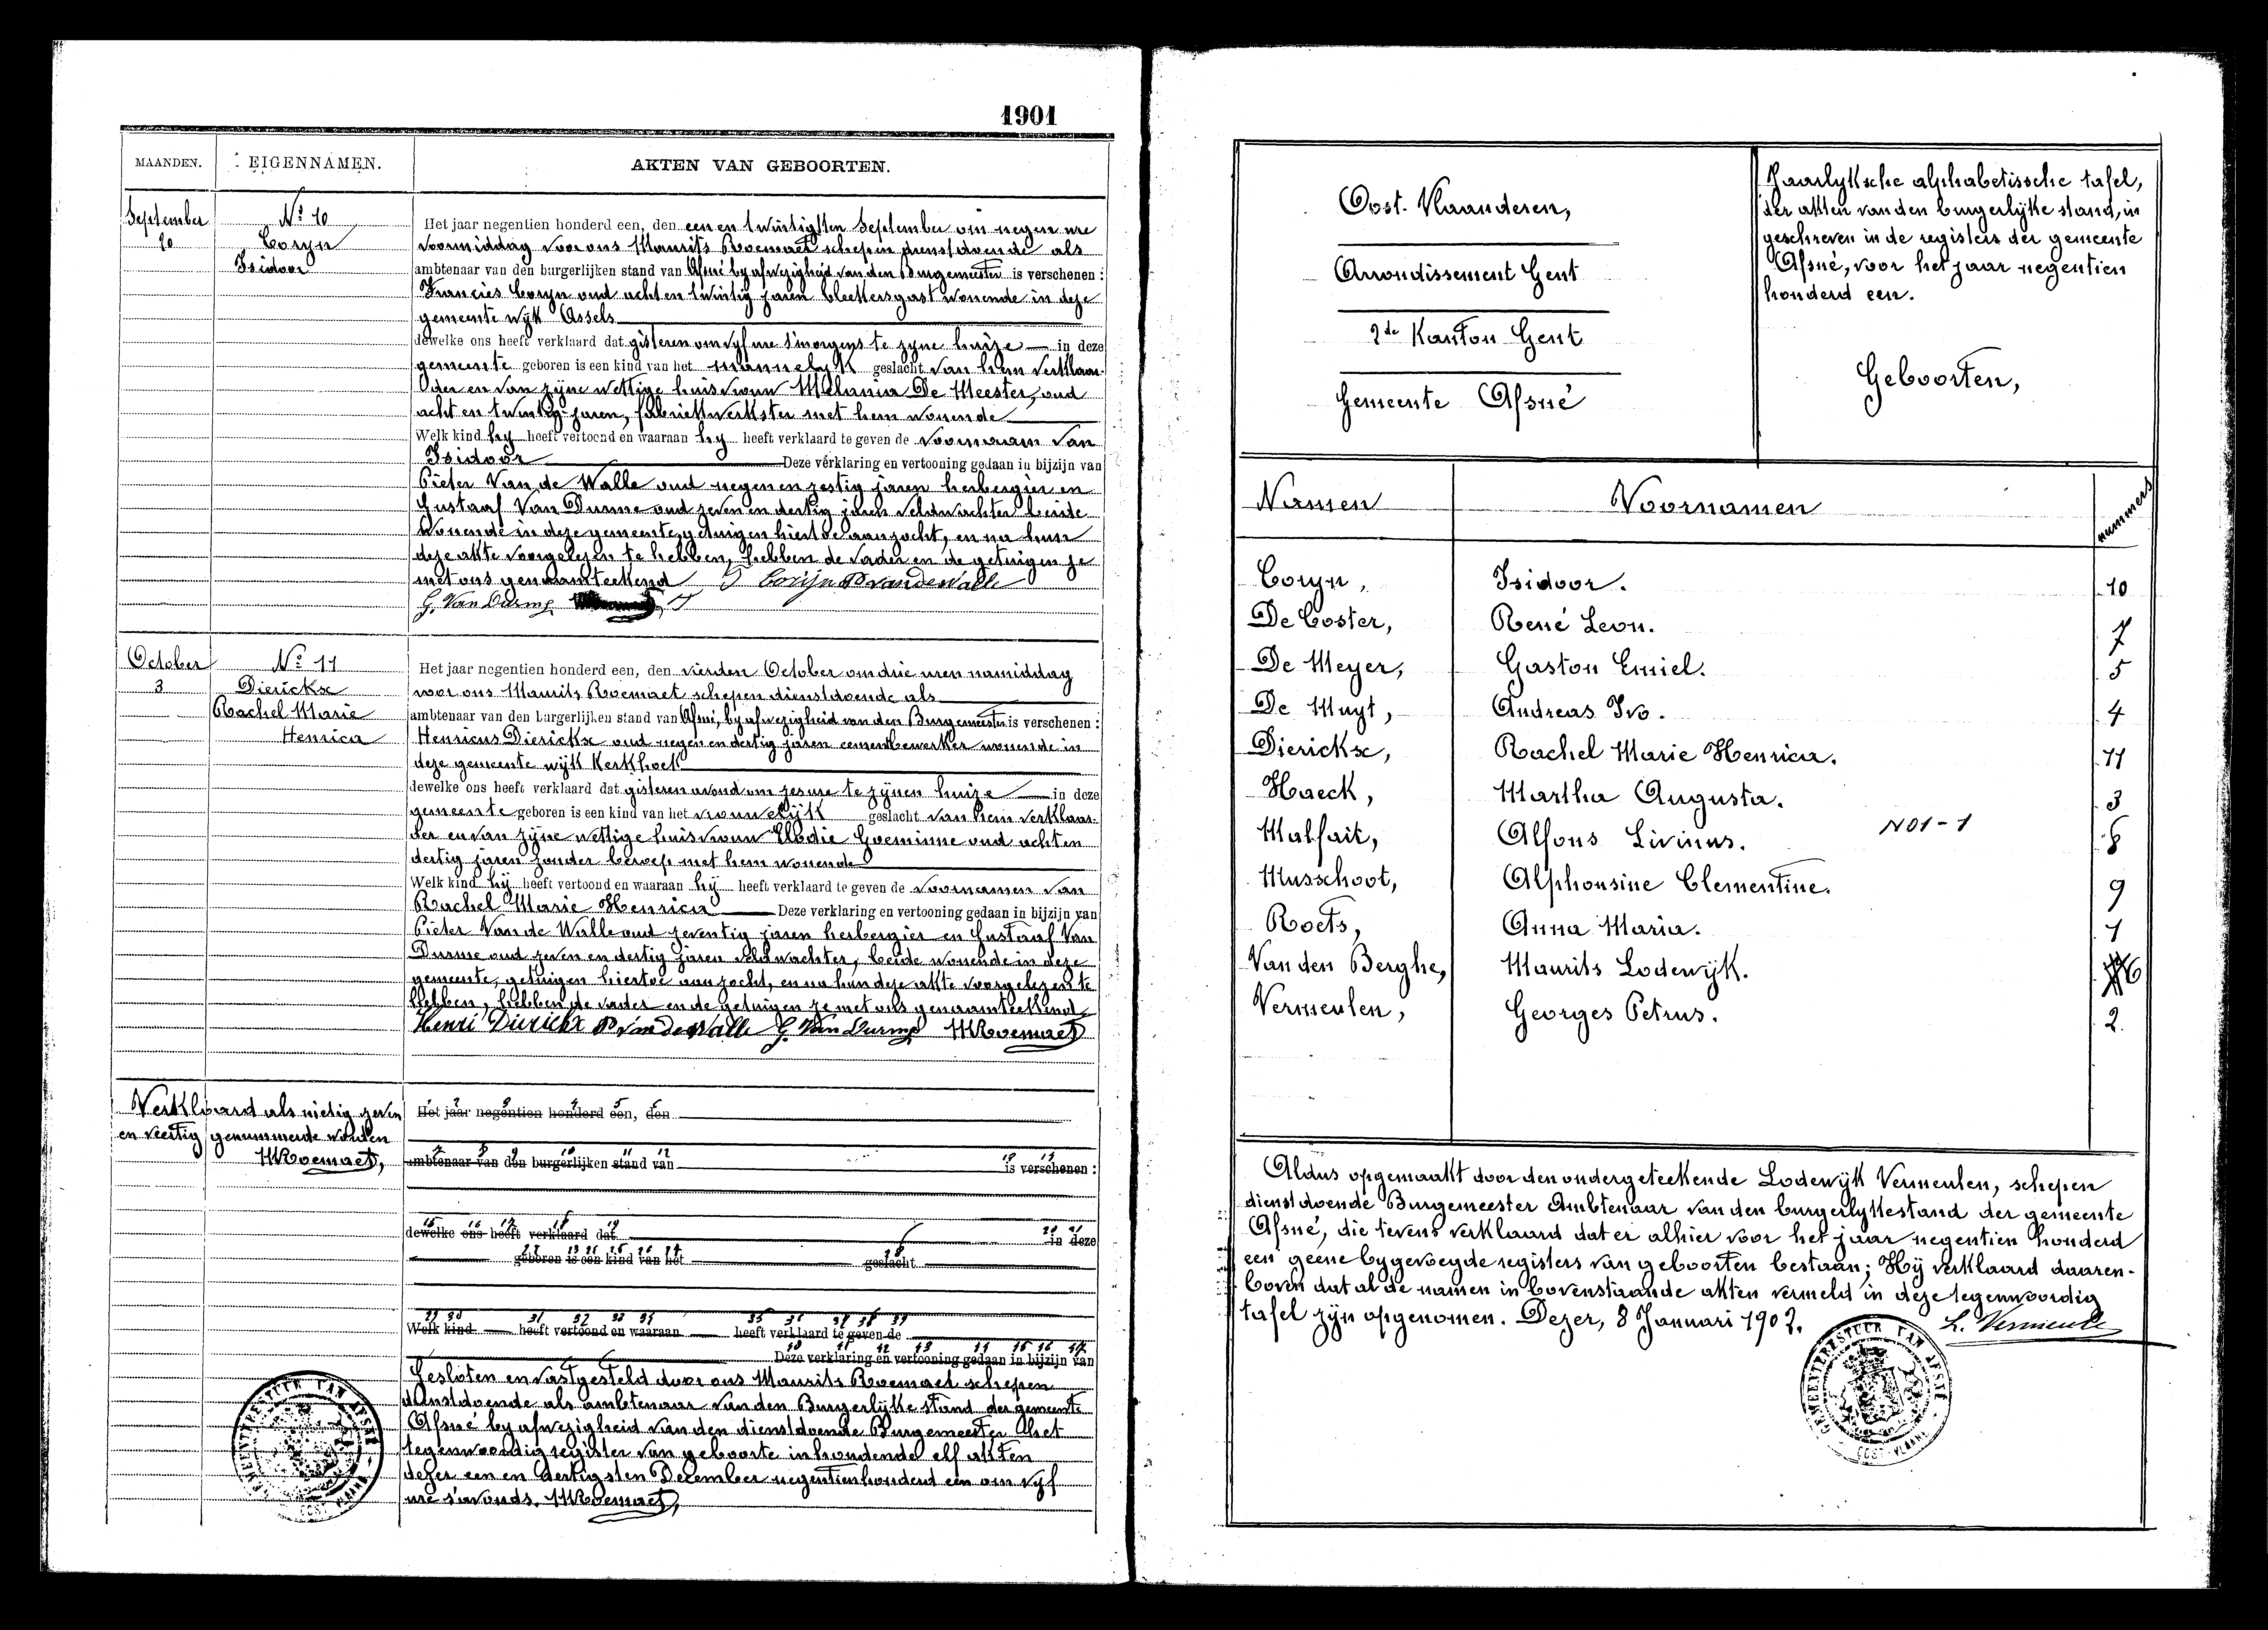 1901
MAANDEN. EIGENNAMEN. AKTEN VAN GEBOORTEN.
September
20
N.º 10
Coryn
Isidoor
Het jaar negentien honderd een, den een en twintigsten September om negen ure
voormiddag voor ons Maurits Roemaet schepen dienstdoende als
ambtenaar van den burgerlijken stand van Afsné by afwezigheid van den Burgemeester is verschenen :
Francies Coryn oud acht en twintig jaren bleekersgast wonende in deze
gemeente wijk Assels
dewelke ons heeft verklaard dat gisteren om vyf ure s'morgens te zyne huize in deze
gemeente geboren is een kind van het mannelyk geslacht van hem verklaar-
der en van zijne wettige huisvrouw Melania De Meester, oud
acht en twintig jaren, fabriekwerkster met hem wonende
Welk kind hy heeft vertoond en waaraan hy heeft verklaard te geven de voornaam van
Isidoor Deze verklaring en vertooning gedaan in bijzijn van
Pieter Van de Walle oud negen en zestig jaren herbergier en
Gustaaf Van Durme oud zeven en dertig jaren veldwachter beide
wonende in deze gemeente getuigen hiertoe aanzocht, en na hun
deze akte voorgelezen te hebben, hebben de vader en de getuigen ze
met ons genaamteekend Corijn P Vandewalle
G. Van Durme
October
3
N.º 11
Dierickx
Rachel Marie
Henrica
Het jaar negentien honderd een, den vierden October om drie uren namiddag
voor ons Maurits Roemaet schepen dienstdoende als
ambtenaar van den burgerlijken stand van Afsné, by afwezigheid van den Burgemeester is verschenen :
Henricus Dierickx oud negen en dertig jaren cementbewerker wonende in
deze gemeente wijk Kerkhoek
dewelke ons heeft verklaard dat gisteren avond om zes ure te zijnen huize in deze
gemeente geboren is een kind van het vrouwelijk geslacht van hem verklaar-
der en van zijne wettige huisvrouw Elodie Goeminne oud acht en
dertig jaren zonder beroep met hem wonende
Welk kind hij heeft vertoond en waaraan hij heeft verklaard te geven de voornamen van
Rachel Marie Henrica Deze verklaring en vertooning gedaan in bijzijn van
Pieter Van de Walle oud zeventig jaren herbergier en Gustaaf Van
Durme oud zeven en dertig jaren veldwachter, beide wonende in deze
gemeente, getuigen hiertoe aanzocht, en na hun deze akte voorgelezen te
hebben, hebben de vader en de getuigen ze met ons genaamteekend
Henri Dierickx P Vandewalle G. Van Durme MRoemaet
Verklaard als nietig zeven
en veertig genummerde woorden
MRoemaet,
Het jaar negentien honderd een, den
ambtenaar van den burgerlijken stand van is verschenen :
dewelke ons heeft verklaard dat in deze
geboren is een kind van het geslacht
Welk kind heeft vertoond en waaraan heeft verklaard te geven de
Deze verklaring en vertooning gedaan in bijzijn van
Gesloten en vastgesteld door ons Maurits Roemaet schepen
dienstdoende als ambtenaar van den Burgerlijke stand der gemeente
Afsné by afwezigheid van den dienstdoende Burgemeester het
tegenwoordig register van geboorte inhoudende elf akten
dezer een en dertigsten December negentienhonderd een om vyf
ure s'avonds. MRoemaet,
GEMEENTEBESTUUR VAN AFSNÉ
Oost-Vlaanderen,
Arrondissement Gent
2de Kanton Gent
Gemeente Afsné
Jaarlyksche alphabetissche tafel,
der akten van den burgerlijke stand, in
geschreven in de registers der gemeente
Afsné, voor het jaar negentien
honderd een.
Geboorten,
Namen Voornamen nummers
Coryn, Isidoor. 10
De Coster, René Leon. 7
De Meyer, Gaston Emiel. 5
De Muyt, Andreas Ivo. 4
Dierickx, Rachel Marie Henrica. 11
Haeck, Martha Augusta. 3
N01-1
Malfait, Alfons Livinus. 8
Musschoot, Alphonsine Clementine. 9
Roets, Anna Maria. 1
Van den Berghe, Maurits Lodewijk. 6
Vermeulen, Georges Petrus. 2.
Aldus opgemaakt door den ondergeteekende Lodewijk Vermeulen, schepen
dienstdoende Burgemeester Ambtenaar van den burgerlykestand der gemeente
Afsné, die tevens verklaard dat er alhier voor het jaar negentien honderd
een geene bygevoegde registers van geboorten bestaan; Hij verklaard daaren-
boven dat al de namen in bovenstaande akten vermeld in deze tegenwoordig
tafel zijn opgenomen. Dezer, 8 Januari 1902.
L. Vermeule
GEMEENTEBESTUUR VAN AFSNÉ
OOST-VLAAND